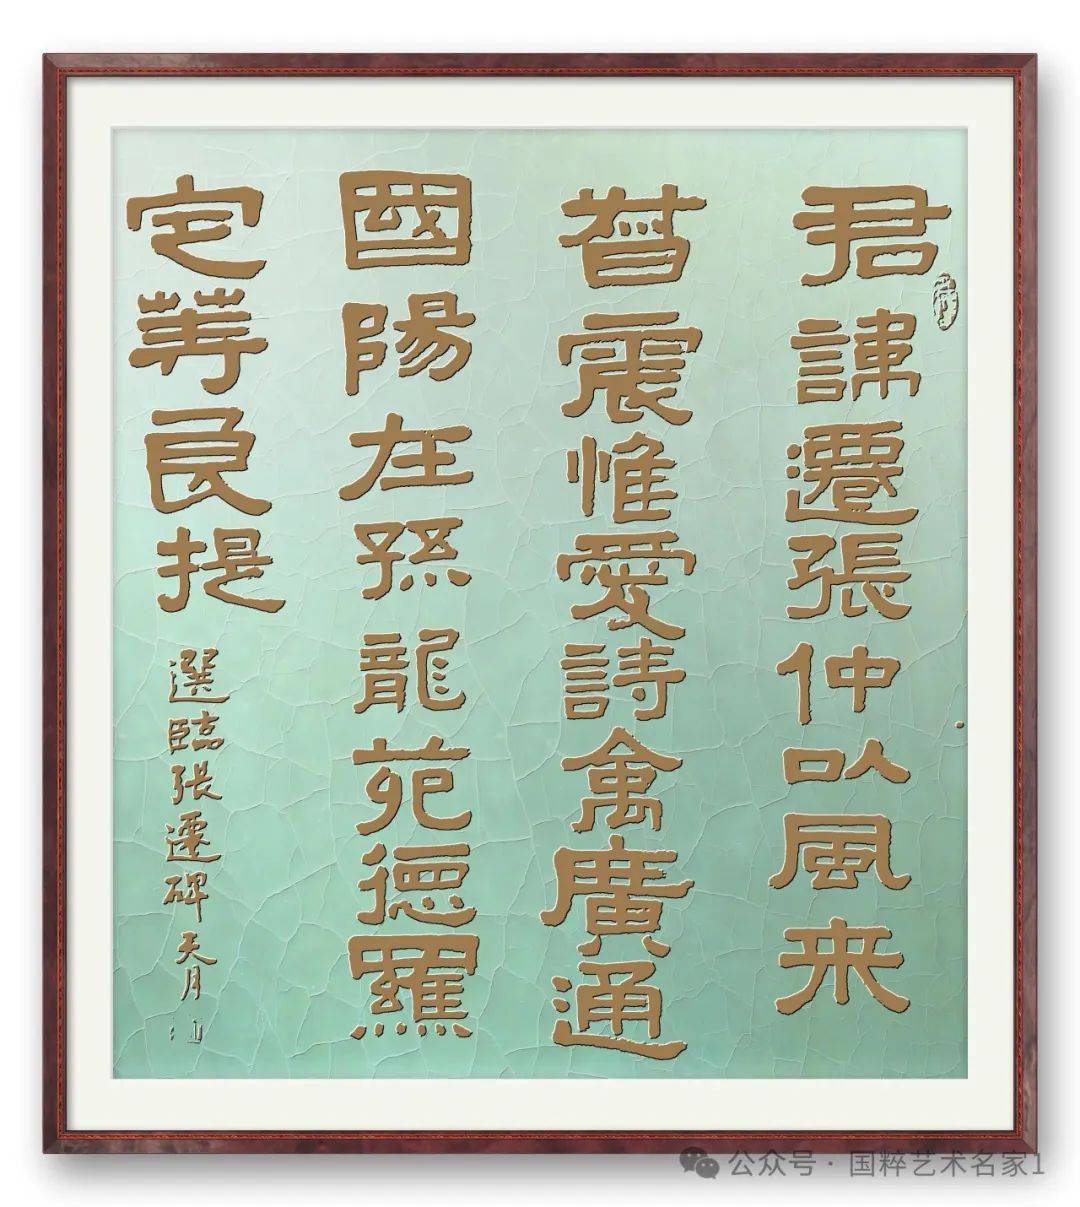 君諱遷張仲以風来
昔震惟愛詩禽廣通
國陽在孫龍苑德羅
定等良提
選臨張遷碑 天月
公众号 · 国粹艺术名家1